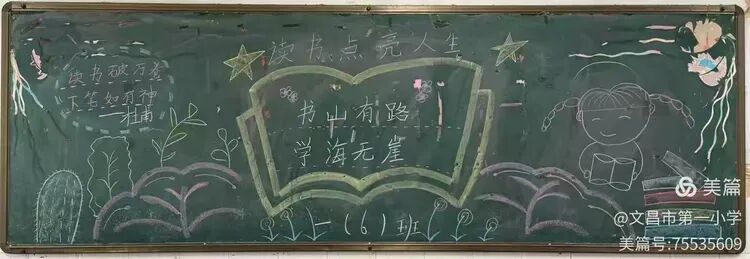 读书点亮人生
读书破万卷
下笔如有神
——杜甫
书山有路
学海无崖
一(6)班
美篇
@文昌市第一小学
美篇号:75535609